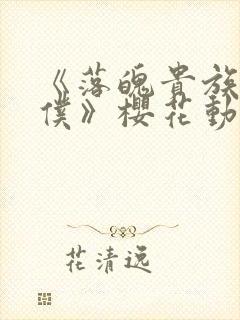 《落魄貴族
僕》櫻花動
花清远